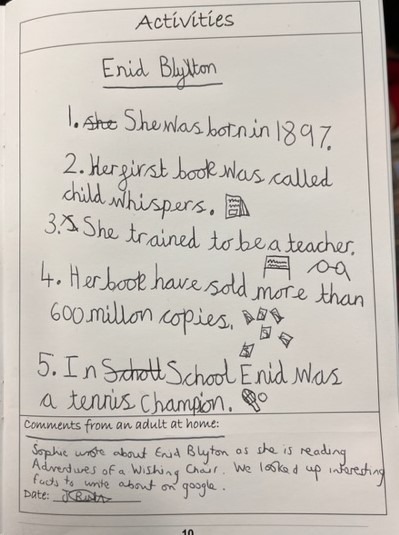 Activities
Enid Blyton
1. she She was born in 1897.
2. Her first book was called
child whispers.
3. She trained to be a teacher.
4. Her book have sold more than
600 millon copies.
5. In School Enid was
a tennis champion.
Comments from an adult at home:
Sophie wrote about Enid Blyton as she is reading
Adventures of a Wishing Chair. We looked up interesting
facts to write about on google.
Date:
10